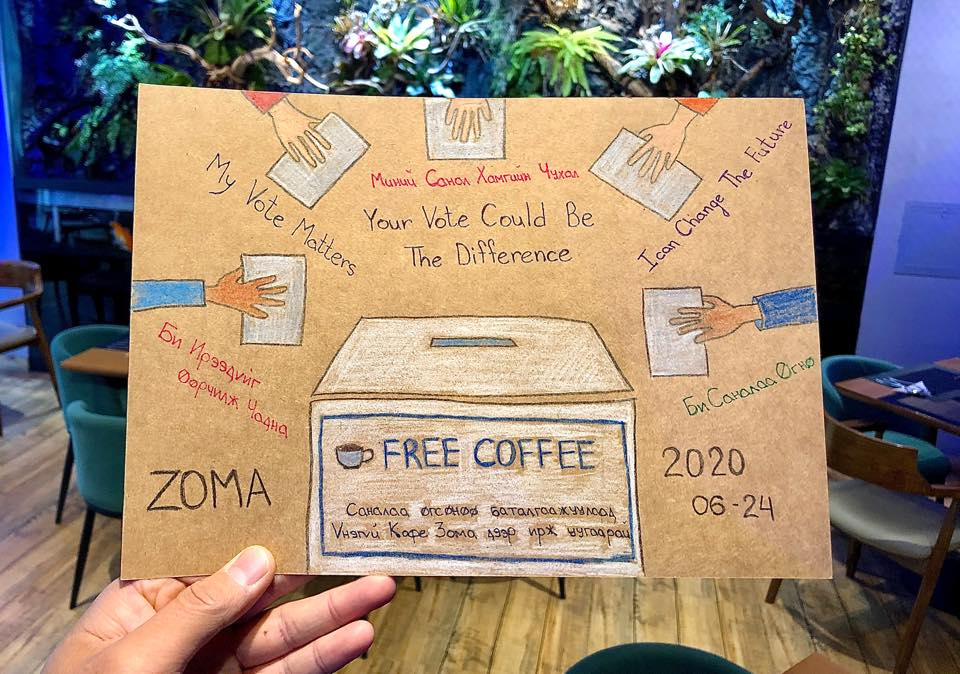 My Vote Matters
Миний Санал Хамгийн Чухал
Your Vote Could Be
The Difference
I can Change The Future
Би Ирээдүйг
Өөрчилж Чадна
Би Саналаа Өгнө
FREE COFFEE
Саналаа өгсөнөө баталгаажуулаад
Үнэгүй Кафе Зома дээр ирж уугаарай
ZOMA
2020
06-24